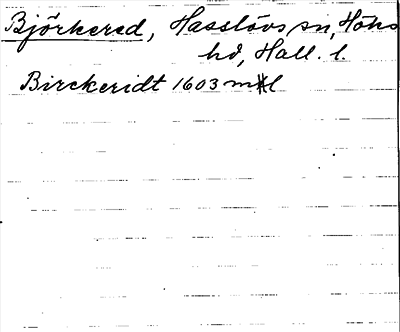 Björkered, Hasslövs sn, Höks
hd, Hall. l.
Birckeridt 1603 mtl